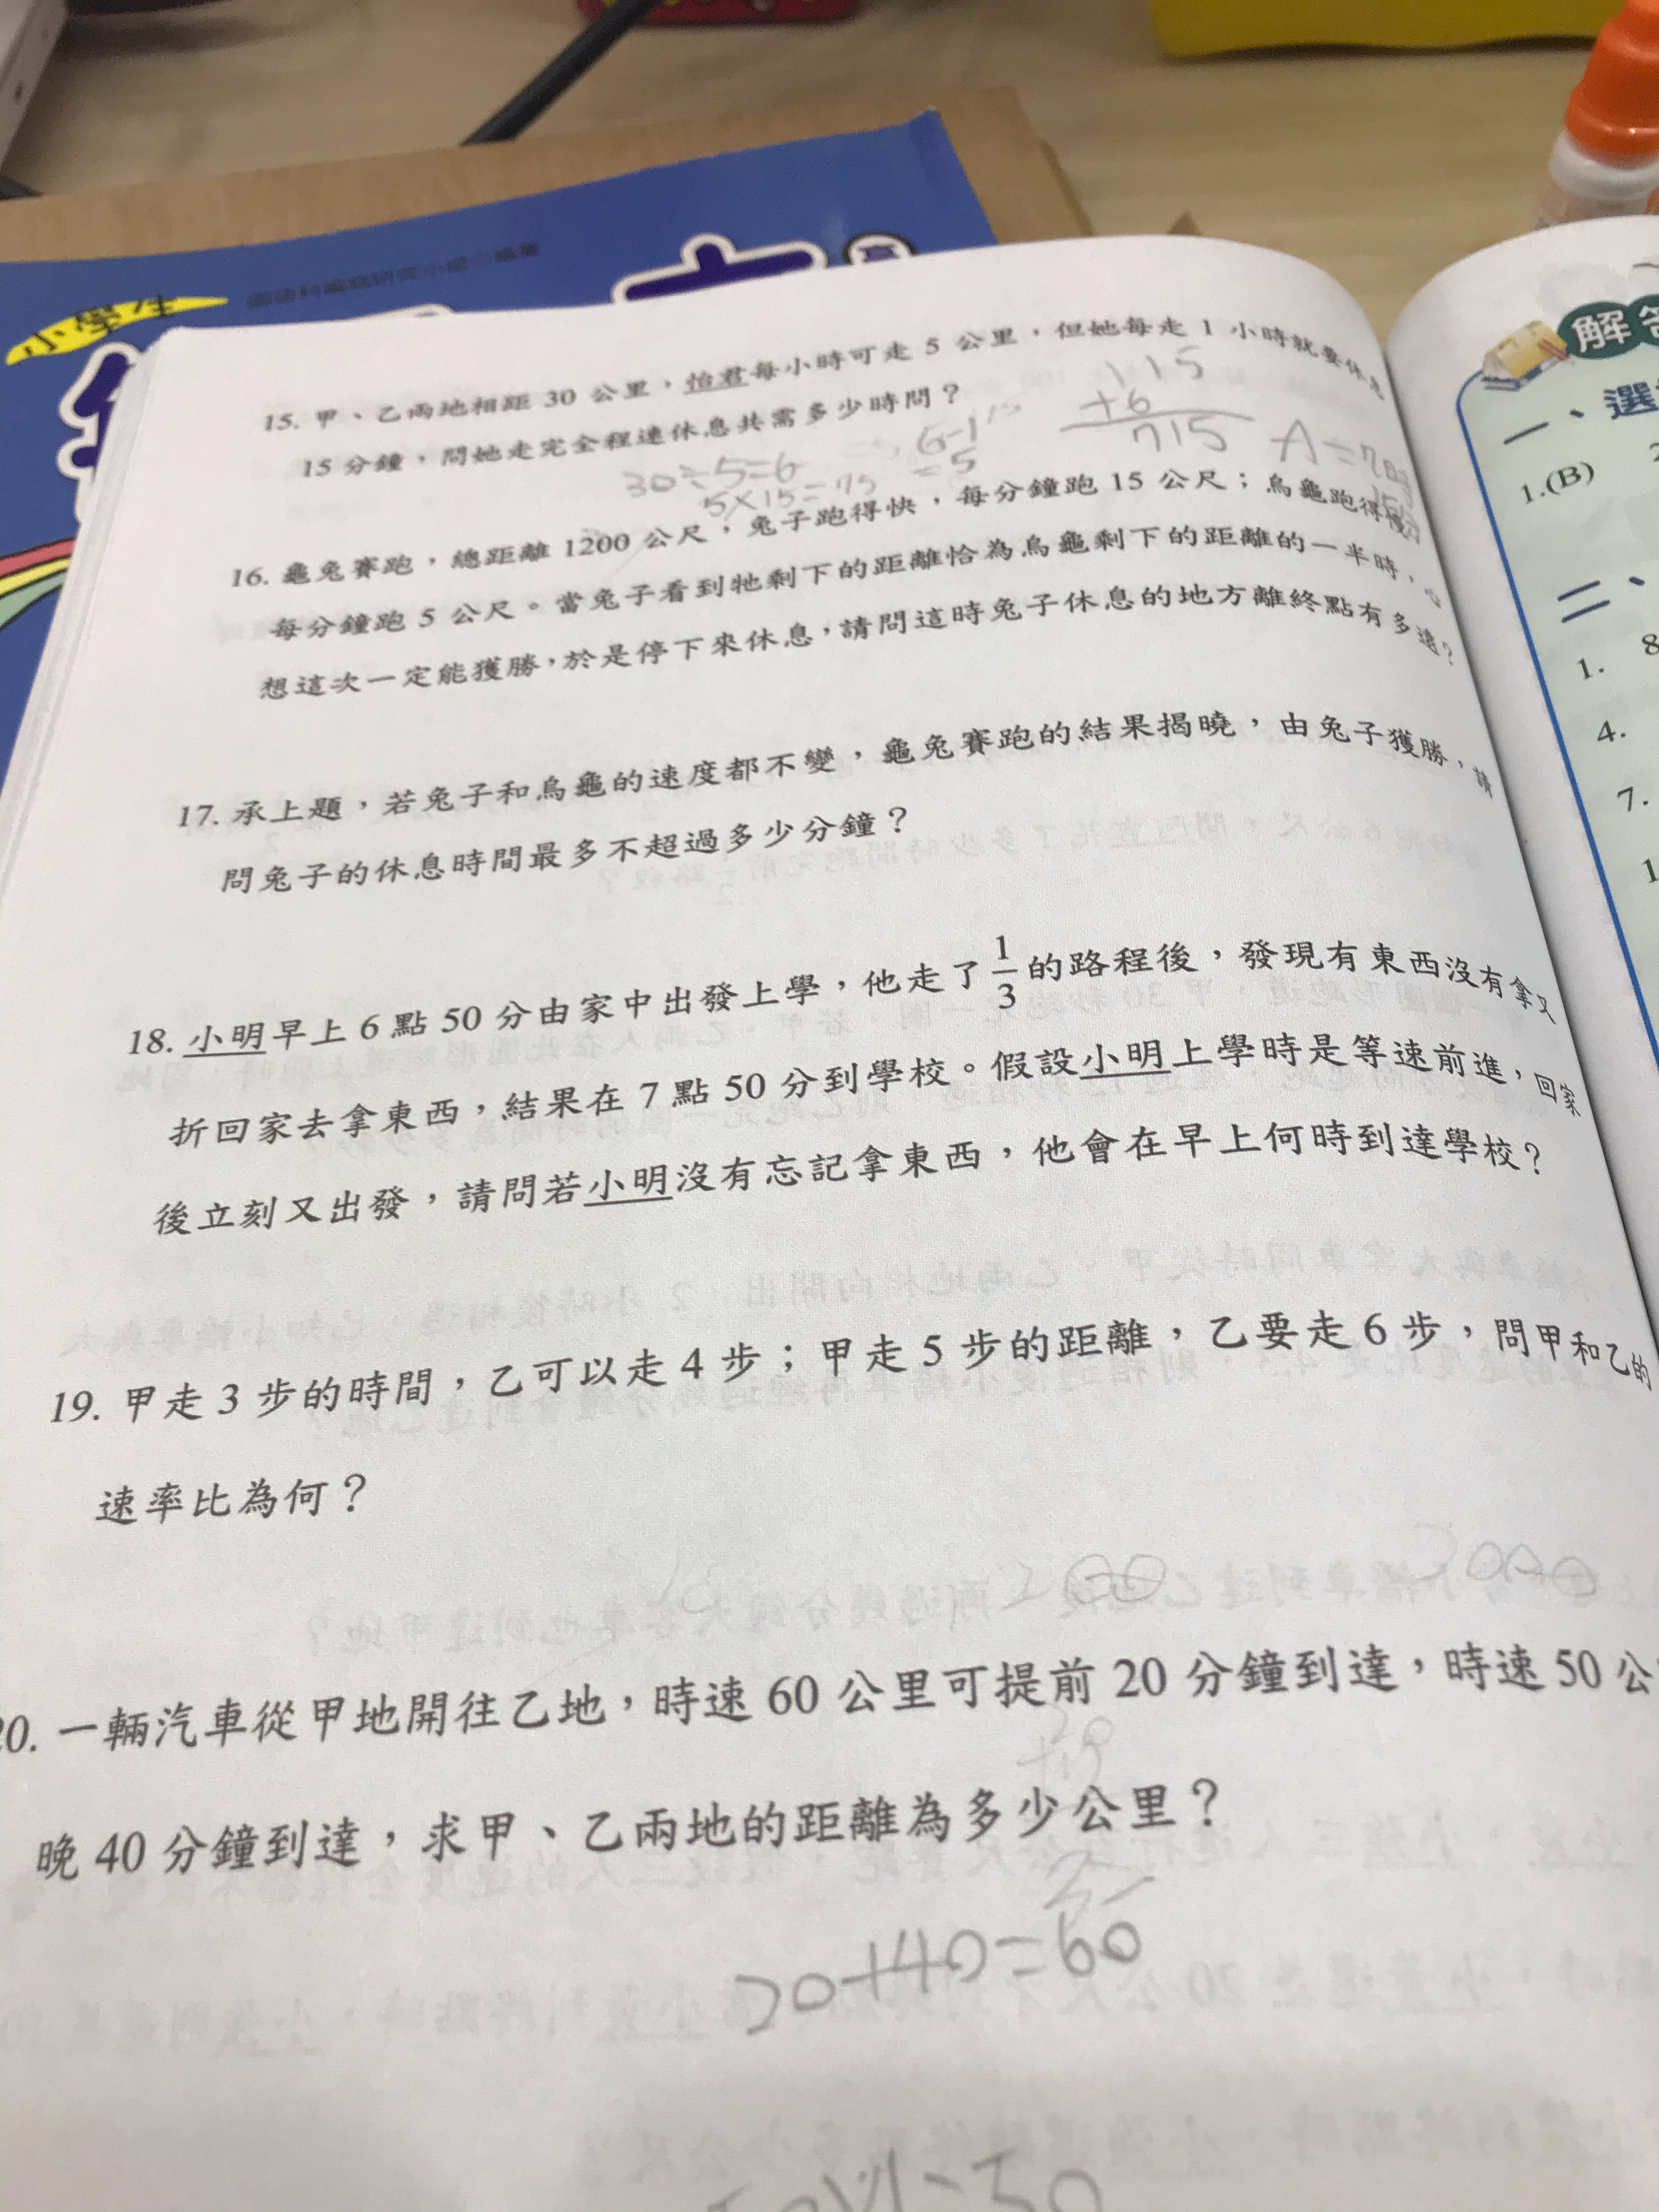 小學生
15. 甲、乙兩地相距 30 公里，怡君每小時可走 5 公里，但她每走 1 小時就要休息
15 分鐘，問她走完全程連休息共需多少時間？
115
+6
715
30÷5=6
6-1
=5
5×15=75
16. 龜兔賽跑，總距離 1200 公尺，兔子跑得快，每分鐘跑 15 公尺；烏龜跑得慢，
每分鐘跑 5 公尺。當兔子看到牠剩下的距離恰為烏龜剩下的距離的一半時，心
想這次一定能獲勝，於是停下來休息，請問這時兔子休息的地方離終點有多遠？
17. 承上題，若兔子和烏龜的速度都不變，龜兔賽跑的結果揭曉，由兔子獲勝，請
問兔子的休息時間最多不超過多少分鐘？
18. 小明早上 6 點 50 分由家中出發上學，他走了 1/3 的路程後，發現有東西沒有拿又
折回家去拿東西，結果在 7 點 50 分到學校。假設小明上學時是等速前進，回家
後立刻又出發，請問若小明沒有忘記拿東西，他會在早上何時到達學校？
19. 甲走 3 步的時間，乙可以走 4 步；甲走 5 步的距離，乙要走 6 步，問甲和乙的
速率比為何？
20. 一輛汽車從甲地開往乙地，時速 60 公里可提前 20 分鐘到達，時速 50 公
晚 40 分鐘到達，求甲、乙兩地的距離為多少公里？
20+40=60
解
一、選
1.(B)
二、
1. 8
4.
7.
1